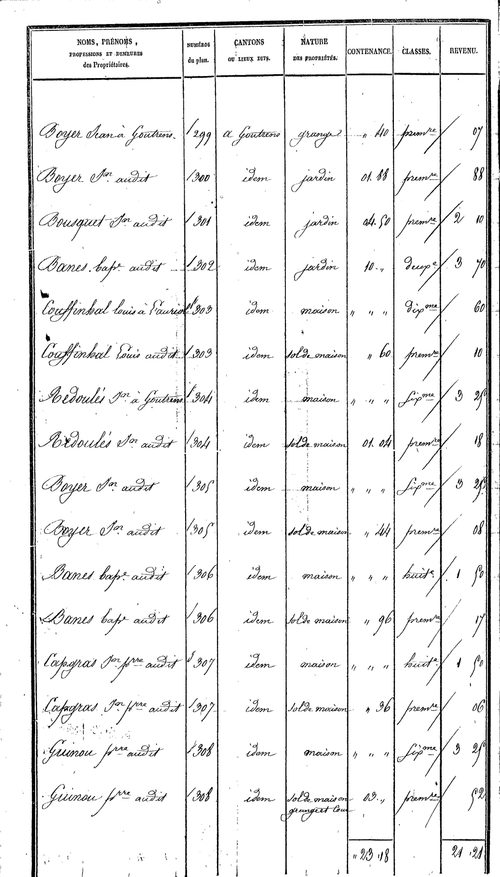 NOMS, PRÉNOMS, PROFESSIONS ET DEMEURES des Propriétaires. | NUMÉROS du plan. | CANTONS OU LIEUX DITS. | NATURE DES PROPRIÉTÉS. | CONTENANCE. | CLASSES. | REVENU.
Boyer Jean à Goutrens. 299 a Goutrens grange " 40 premre 07
Boyer Jn audit 300 idem jardin 01. 88 premre 88
Bousquet Jn audit 301 idem jardin 04. 50 premre 2 10
Banes bapt audit 302 idem jardin 10. " deuxe 3 70
Couffinhal louis à 303 idem maison " " " dixme 60
Couffinhal Louis audit 303 idem sol de maison " 60 premre 10
Redoulés Jn a Goutrens 304 idem maison " " " sixme 3 25
Redoulés Jn audit 304 idem sol de maison 01. 04 premre 18
Boyer Jn audit 305 idem maison " " " sixme 3 25
Boyer Jn audit 305 idem sol de maison " 44 premre 08
Banes bapt audit 306 idem maison " " " huite 1 50
Banes bapt audit 306 idem sol de maison " 96 premre 17
Capgras Jn prre audit 307 idem maison " " " huite 1 50
Capgras Jn prre audit 307 idem sol de maison " 36 premre 06
Guinou prre audit 308 idem maison " " " sixme 3 25
Guinou prre audit 308 idem sol de maison 03. " premre 52
grange et Cour
" 23. 18 21. 21